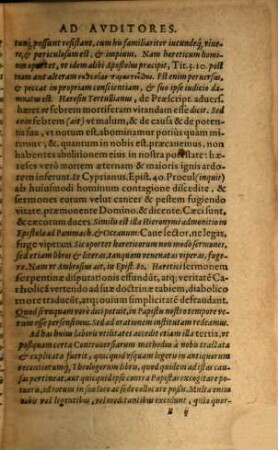 AD AVDITORES.
tumq́; possunt resistant, cum his familiariter iucundeq́; viue-
re, & periculosum est, & impium. Nam hæreticum homi-
nem oportet, vt idem alibi Apostolus præcipit, Tit. 3.10. post
vnam aut alteram Est enim peruersus,
& peccat in propriam conscientiam, & suo ipse iudicio da-
mnatus est. Hæresin Tertullianus, de Præscript. aduers.
hæret. vt febrem mortifesam vitandam esse dicit. Sed
cum febrem (ait) vt malum, & de causa & de poten-
tia sua, vt notum est, abominamur potius quam mi-
ramur, &, quantum in nobis est, præcauemus, non
habentes abolitionem eius in nostra potestate: hæ-
reses verò mortem æternam & maioris ignis ardo-
rem inferent: te Cyprianus, Epist. 40. Procul (inquit)
ab huiusmodi hominum contagione discedite, &
sermones eorum velut cancer & pestem fugiendo
vitate, præmonente Domino, & dicente: Cæci sunt,
& cæcorum duces. Similis est illa Hieronymi admonitio in
Epistola ad Pammach. & Oceanum: Caue lector, ne legas,
fuge viperam. Sic oportet hæreticorum non modo sermones,
sed etiam libros & literas, tanquam venenatas viperas, fuge-
re. Nam vt Ambrosius ait, in Epist. 82. Hæretici sermonem
serpentinæ disputationis effundũt, atq; veritatẽ Ca-
tholicã vertendo ad suæ doctrinæ rabiem, diabolico
more traducũt, atq; ouium simplicitatẽ defraudant.
Quod si vnquam verè dici potuit, in Papistis nostro tempore ve-
rum esse persensimus. Sed ad orationem institutam redeamus.
Ad hæc huius laboris vtilitates accedit etiam illa tertia, vt
postquam certa Controuersiarum methodo à nobis tractata
& explicata fuerit, quicquid vsquam legeris in antiquorum
vel recentiorumq́; Theologorum libris, quod quidem ad istas cau-
sas pertineat, aut quicquid ipse contra Papistas excogitare po-
tueris, ad totum in suas sedes ac sede collocare possis. Multa enim
nobis vel legentibus, vel meditantibus excidunt, quia quor-
ij